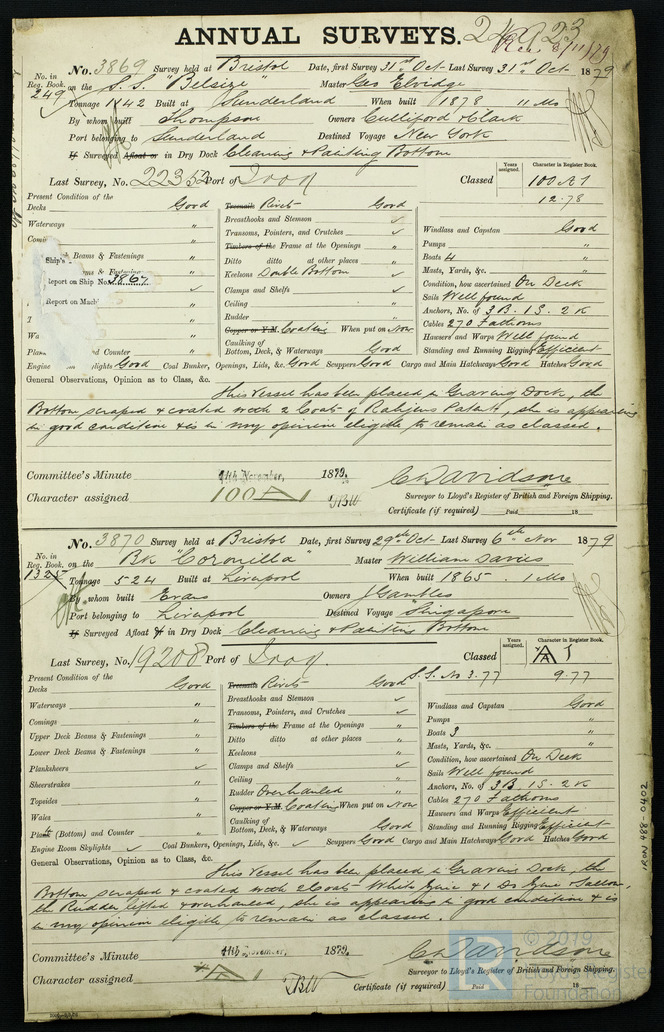 ANNUAL SURVEYS. 24923
Rec. 8/11/79
No. 3869 Survey held at Bristol Date, first Survey 31st Oct. Last Survey 31st Oct. 1879
No. in Reg. Book. 249 on the S.S. "Belsize" Master Geo Elvidge
Tonnage 1142 Built at Sunderland When built 1878 11 Mo
By whom built Thompson Owners Culliford & Clark
Port belonging to Sunderland Destined Voyage New York
If Surveyed Afloat or in Dry Dock Cleaning & Painting Bottom
Last Survey, No. 22352 Port of Classed Years assigned. Character in Register Book. 100A1
12.78
Present Condition of the
Decks Good Treenails Rivets Good
Waterways " Breasthooks and Stemson ✓ Windlass and Capstan Good
Comi " Transoms, Pointers, and Crutches ✓ Pumps "
Ship's
ck Beams & Fastenings " Timbers of the Frame at the Openings " Boats 4 "
ms & Fastening " Ditto ditto at other places " Masts, Yards, &c. "
Report on Ship No. 3867 Keelsons Double Bottom Condition, how ascertained On Deck
✓ Clamps and Shelfs ✓ Sails Well found
Report on Mach Ceiling " Anchors, No. of 3 B. 1 S. 2 K
" Rudder " Cables 270 Fathoms
Wa " Copper or Y.M. Coating When put on Now Hawsers and Warps Well found
Plank and Counter " Caulking of Bottom, Deck, & Waterways Good Standing and Running Rigging Efficient
Engine ylights Good Coal Bunker, Openings, Lids, &c. Good Scuppers Good Cargo and Main Hatchways Good Hatches Good
General Observations, Opinion as to Class, &c.
This Vessel has been placed in Graving Dock, the
Bottom scraped & coated with 2 Coats of Rahtjens Patent, she is appearing
in good condition & is in my opinion eligible to remain as classed.
Committee's Minute 11th November, 1879.
Character assigned 100 A 1
C Davidson
Surveyor to Lloyd's Register of British and Foreign Shipping.
Certificate (if required) Paid 18
No. 3870 Survey held at Bristol Date, first Survey 29th Oct. Last Survey 6th Nov 1879
No. in Reg. Book. 1325 on the Bk "Coronilla" Master William Davies
Tonnage 524 Built at Liverpool When built 1865 1 Mo
By whom built Evans Owners J Gambles
Port belonging to Liverpool Destined Voyage Singapore
If Surveyed Afloat or in Dry Dock Cleaning & Painting Bottom
Last Survey, No. 19208 Port of Classed Years assigned. Character in Register Book. A 1
S.S. No 3.77 9.77
Present Condition of the
Decks Good Treenails Rivets Good
Waterways " Breasthooks and Stemson ✓ Windlass and Capstan Good
Comings " Transoms, Pointers, and Crutches ✓ Pumps "
Upper Deck Beams & Fastenings " Timbers of the Frame at the Openings " Boats 3 "
Lower Deck Beams & Fastenings " Ditto ditto at other places " Masts, Yards, &c. "
Keelsons " Condition, how ascertained On Deck
Planksheers ✓ Clamps and Shelfs ✓ Sails Well found
Sheerstrakes " Ceiling " Anchors, No. of 3 B. 1 S. 2 K
Topsides " Rudder Overhauled Cables 270 Fathoms
Wales " Copper or Y.M. Coating When put on Now Hawsers and Warps Efficient
Plank (Bottom) and Counter " Caulking of Bottom, Deck, & Waterways Good Standing and Running Rigging Efficient
Engine Room Skylights ✓ Coal Bunkers, Openings, Lids, &c. ✓ Scuppers Good Cargo and Main Hatchways Good Hatches Good
General Observations, Opinion as to Class, &c.
This Vessel has been placed in Graving Dock, the
Bottom scraped & coated with 2 Coats White Zinc & 1 Do Zinc & Tallow,
the Rudder lifted & overhauled, she is appearing in good condition & is
in my opinion eligible to remain as classed.
Committee's Minute 11th November, 1879.
Character assigned A 1
C Davidson
Surveyor to Lloyd's Register of British and Foreign Shipping.
Certificate (if required) Paid 18
IRON 488-0402
© 2019
Lloyd's Register
Foundation